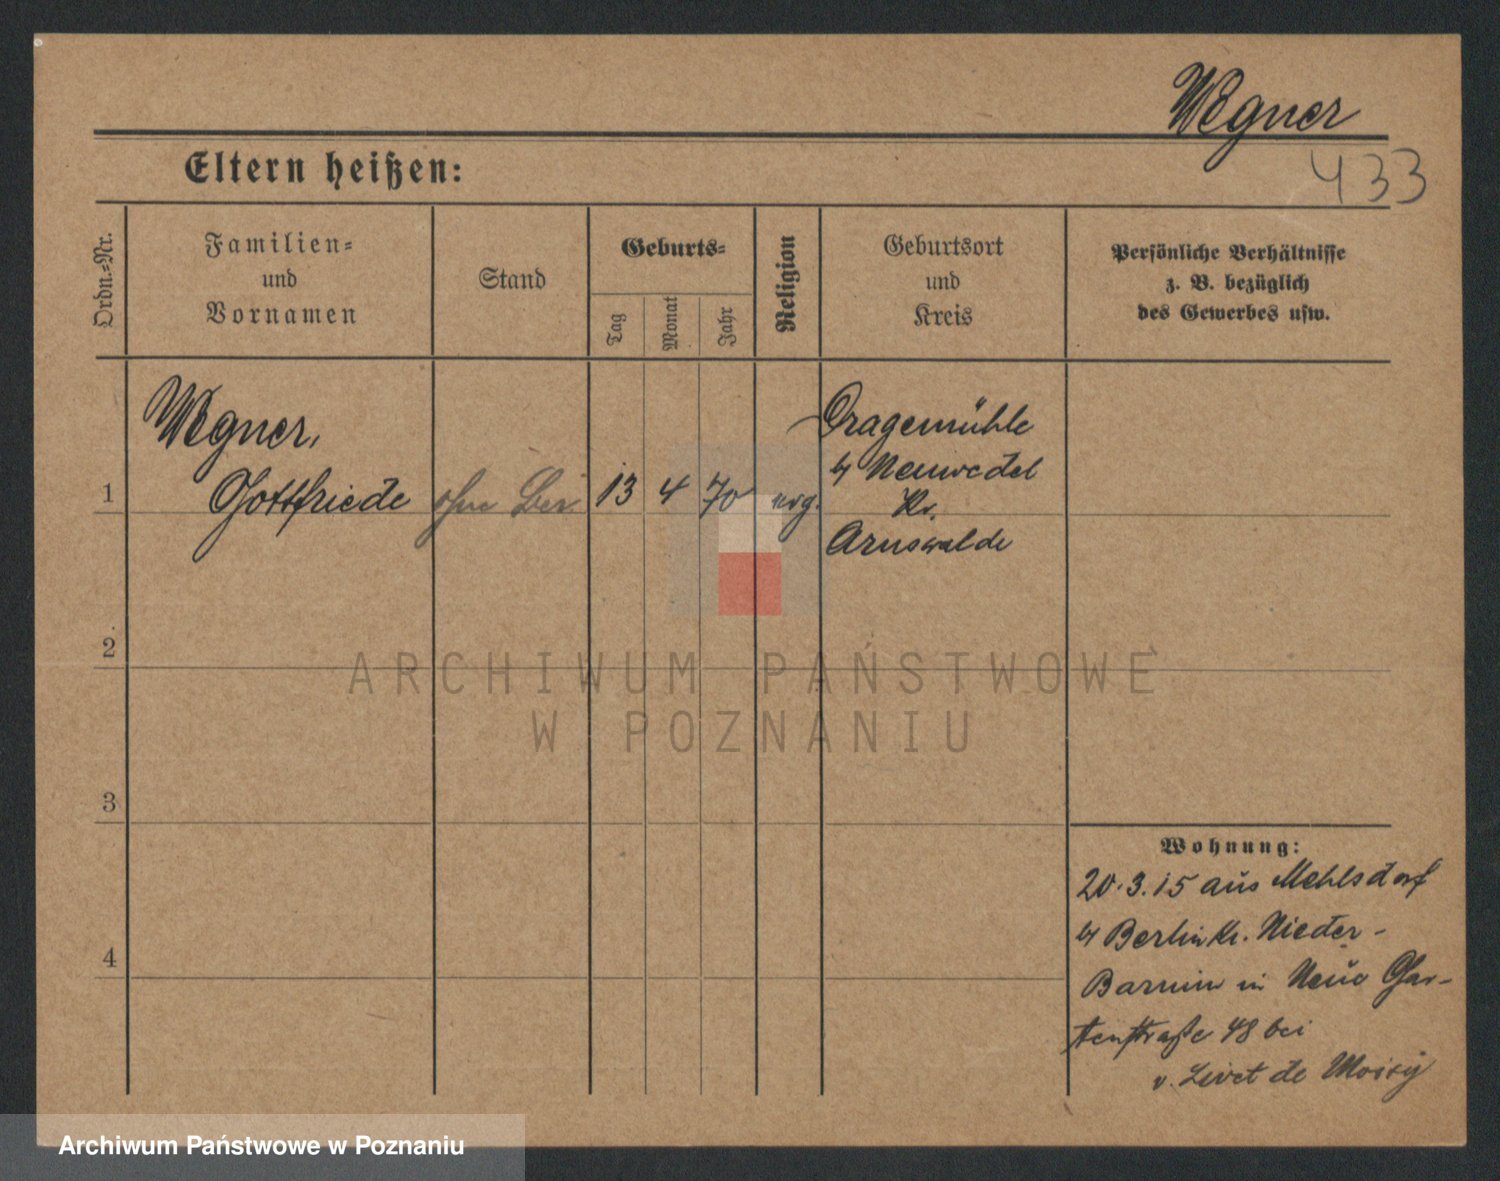 Wegner
433
Eltern heißen:
Ordn.=Nr.
Familien=
und
Vornamen
Stand
Geburts=
Tag
Monat
Jahr
Religion
Geburtsort
und
Kreis
Persönliche Verhältnisse
z. B. bezüglich
des Gewerbes usw.
1
Wegner,
Gottfriede
ohne Ber.
13
4
70
evg.
Dragemühle
b/ Neuwedel
Kr.
Arnswalde
2
3
4
ARCHIWUM PAŃSTWOWE
W POZNANIU
Wohnung:
20.3.15 aus Mehlsdorf
b/ Berlin Kr. Nieder-
Barnim in Neue Gar-
tenstraße 48 bei
v. Livet de Moisy
Archiwum Państwowe w Poznaniu